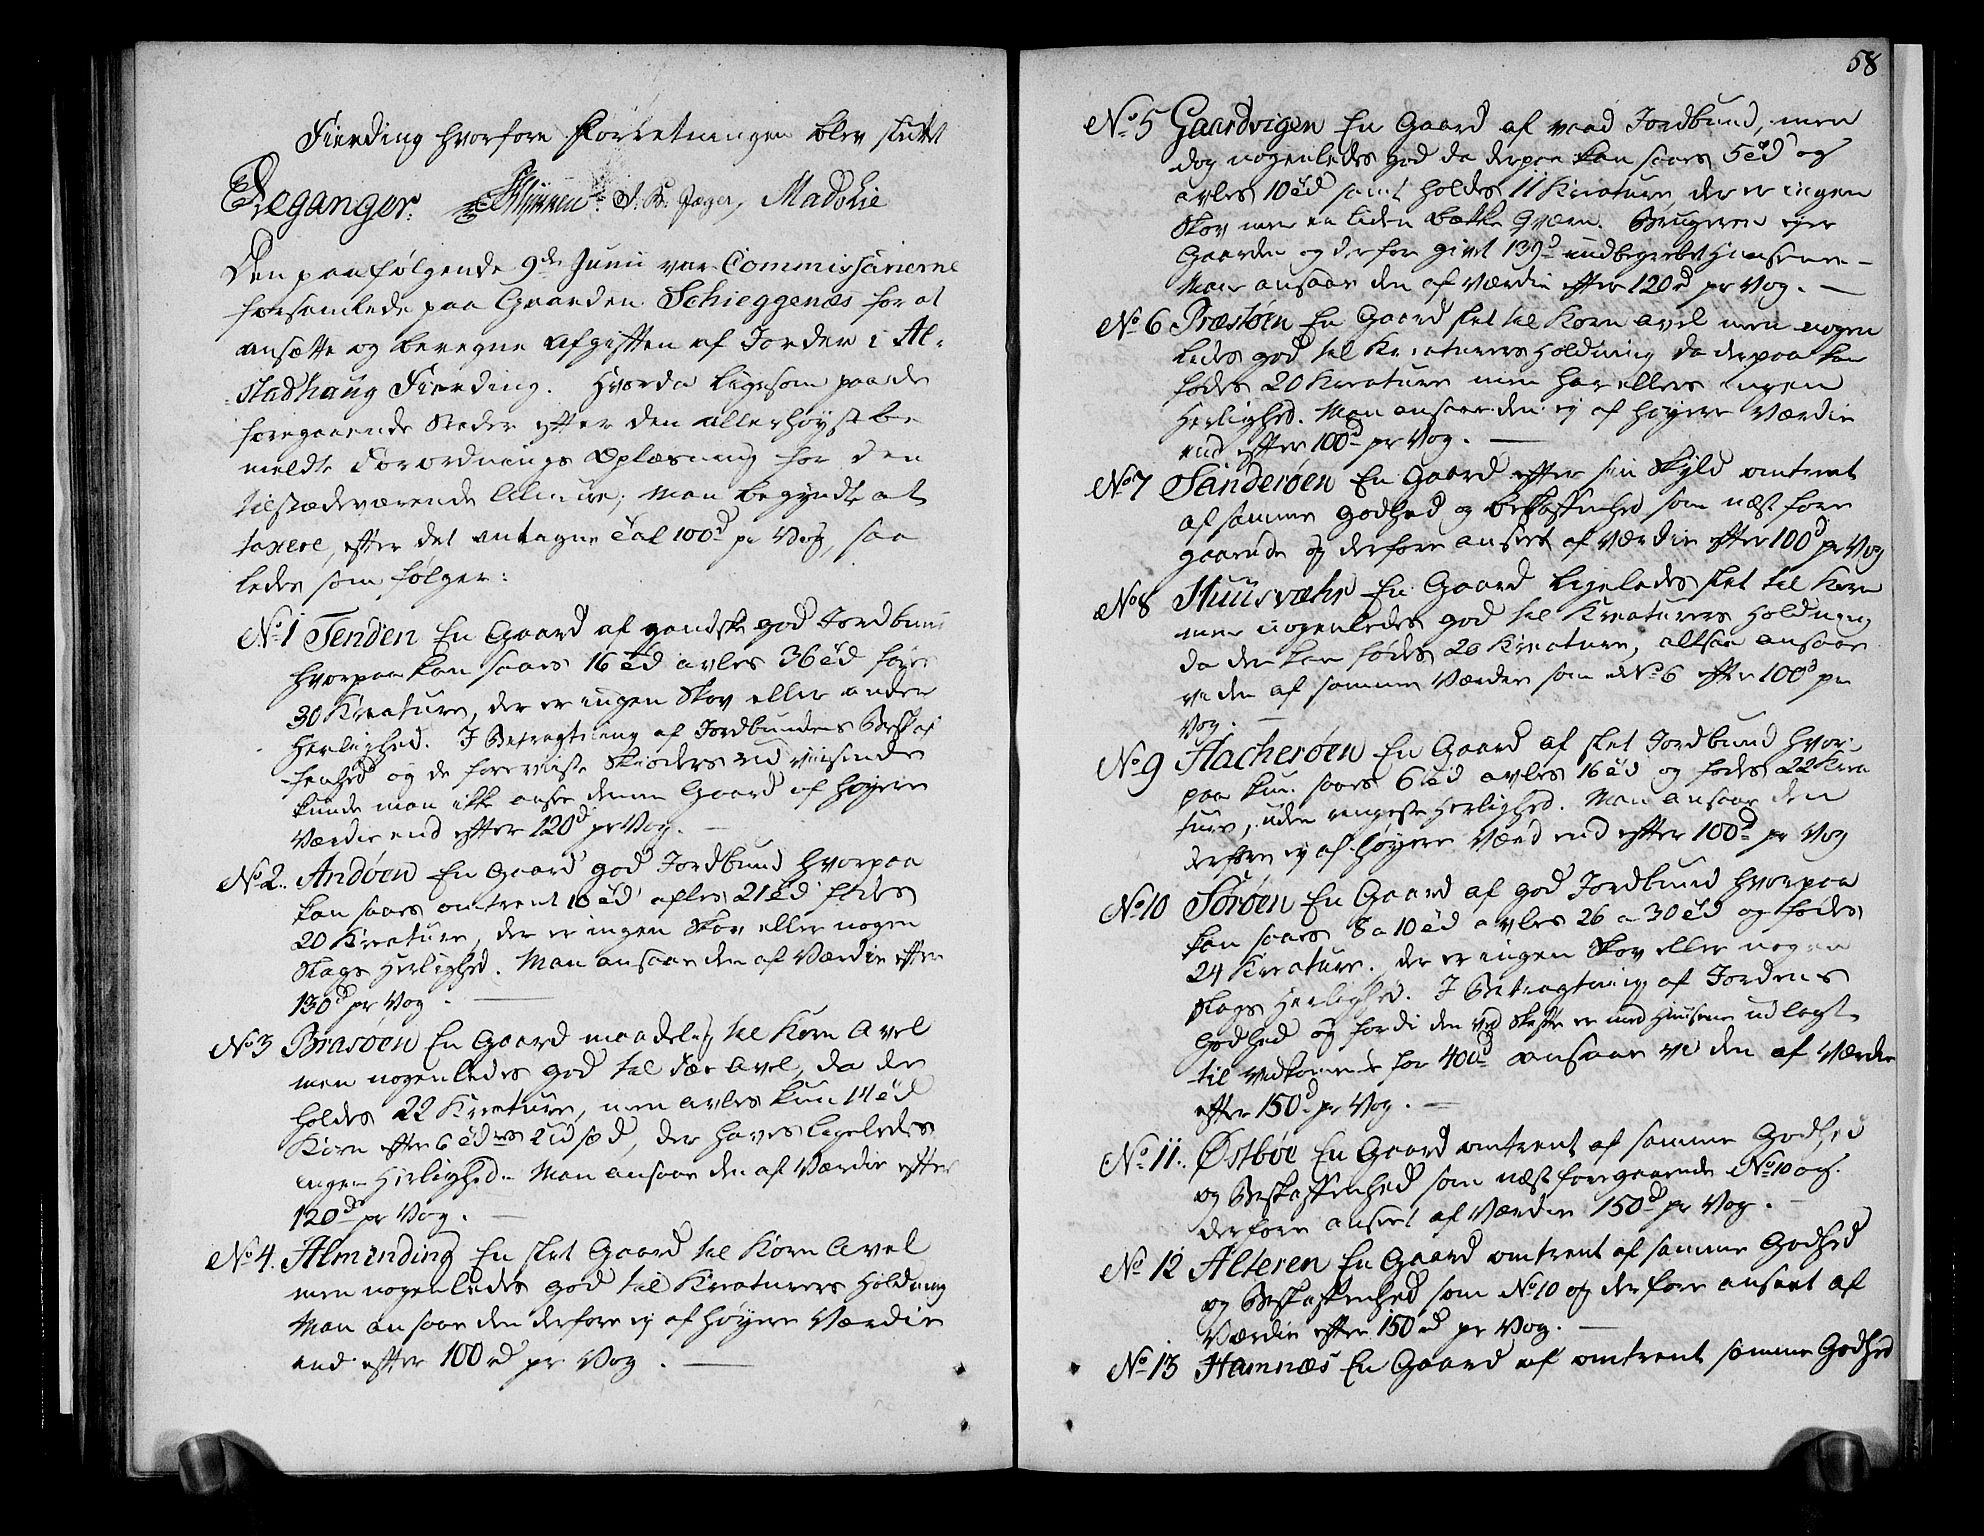 Fierding hvorfore Forretningen blev sluttet
Deganger. J. K. Jæger, Madohie
Den paafølgende 9de Junii var Commissarierne
forsamlede paa Gaarden Schieggenæs for at
ansætte og beregne Afgiften af Jorder i Al-
stadhaug Fierding. Hvorda ligesom paa de
foregaaende Steder efter den allerhøystbe
meldte Forordnings Oplæsning for den
tilstædeværende Almue, man begyndte at
taxere, efter det antagne Tal 100d pr Vog, saa
ledes som følger:
No 1 Tenden En Gaard af gandske god Jordbund
hvorpaa kan saaes 16 Td avles 36 Td føde
30 Kreature, der er ingen Skov eller anden
Herlighed. I Betragtning af Jordbundens Beskaf
fenhed og de foreviiste Skiøders Udviisende
kunde man ikke ansee denne Gaard af høyere
Værdie end efter 120d pr Vog.
No 2. Andøen En Gaard god Jordbund hvorpaa
kan saaes omtrent 10 Td afles 21 Td fødes
20 Kreature, der er ingen Skov eller nogen
Slags Herlighed. Man ansaae den af Værdie efter
130d pr Vog.
No 3 Brasøen En Gaard maadelig til Korn Avel
men nogenledes god til Fæe Avel, da der
holdes 22 Kreature, men avles kun 14 Td
Korn efter 6 Tdes Udsæd, der haves ligeledes
ingen Herlighed. Man ansaae den af Værdie efter
120d pr Vog.
No 4. Almending En slet Gaard til Korn Avel
men nogenledes god til Kreaturers Holdning
Man ansaae den derfore ej af høyere Værdie
end efter 100 rd pr Vog.
58
No 5 Gaardvigen En Gaard af vaad Jordbund, men
dog nogenledes god da derpaa kan saaes 5 Td og
avles 10 Td samt holdes 11 Kreature, der er ingen
Skov men en liden Bække Qværn. Brugeren ejer
Gaarden og derfor givet 139d indbegrebet Huusene
Man ansaae den af Værdie efter 120d pr Vog.
No 6 Præstøen En Gaard slet til Korn avel men nogen
ledes god til Kreaturers Holdning da derpaa kan
fødes 20 Kreature men har ellers ingen
Herlighed. Man ansaae den ej af høyere Værdie
end efter 100d pr Vog.
No 7 Sanderøen En Gaard efter sin Skyld omtrent
af samme godhed og beskaffenhed som næst fore
gaaende og derfore anseet af Værdie efter 100d pr Vog
No 8 Huusvæhr En Gaard ligeledes slet til Korn
men nogenledes god til Kreaturers Holdning
da der kan fødes 20 Kreature, altsaa ansaae
vi den af samme Værdie som No 6 efter 100d pr
Vog.
No 9 Hacherøen En Gaard af slet Jordbund hvor
paa kun saaes 6 Td avles 16 Td og fødes 22 Krea
ture, uden ringeste Herlighed. Man ansaae den
derfore ej af høyere Værd end efter 100d pr Vog
No 10 Sørøen En Gaard af god Jordbund hvorpaa
kan saaes 8 a 10 Td avles 26 a 30 Td og fødes
24 Kreature. der er ingen Skov eller nogen
slags Herlighed. I Betragtning af Jordens
Godhed og fordi den ved Skifte er med Huusene udlagt
til Vedkommende for 400d ansaae vi den af Værdie
efter 150d pr Vog.
No 11. Østbøe En Gaard omtrent af samme Godhed
og Beskaffenhed som næst foregaaende No 10 og
derfore anseet af Værdie 150d pr Vog.
No 12 Alteren En Gaard omtrent af samme Godhed
og Beskaffenhed som No 10 og derfore anseet af
Værdie efter 150 rd pr Vog.
No 13 Hamnæs En Gaard af omtrent samme Godhed